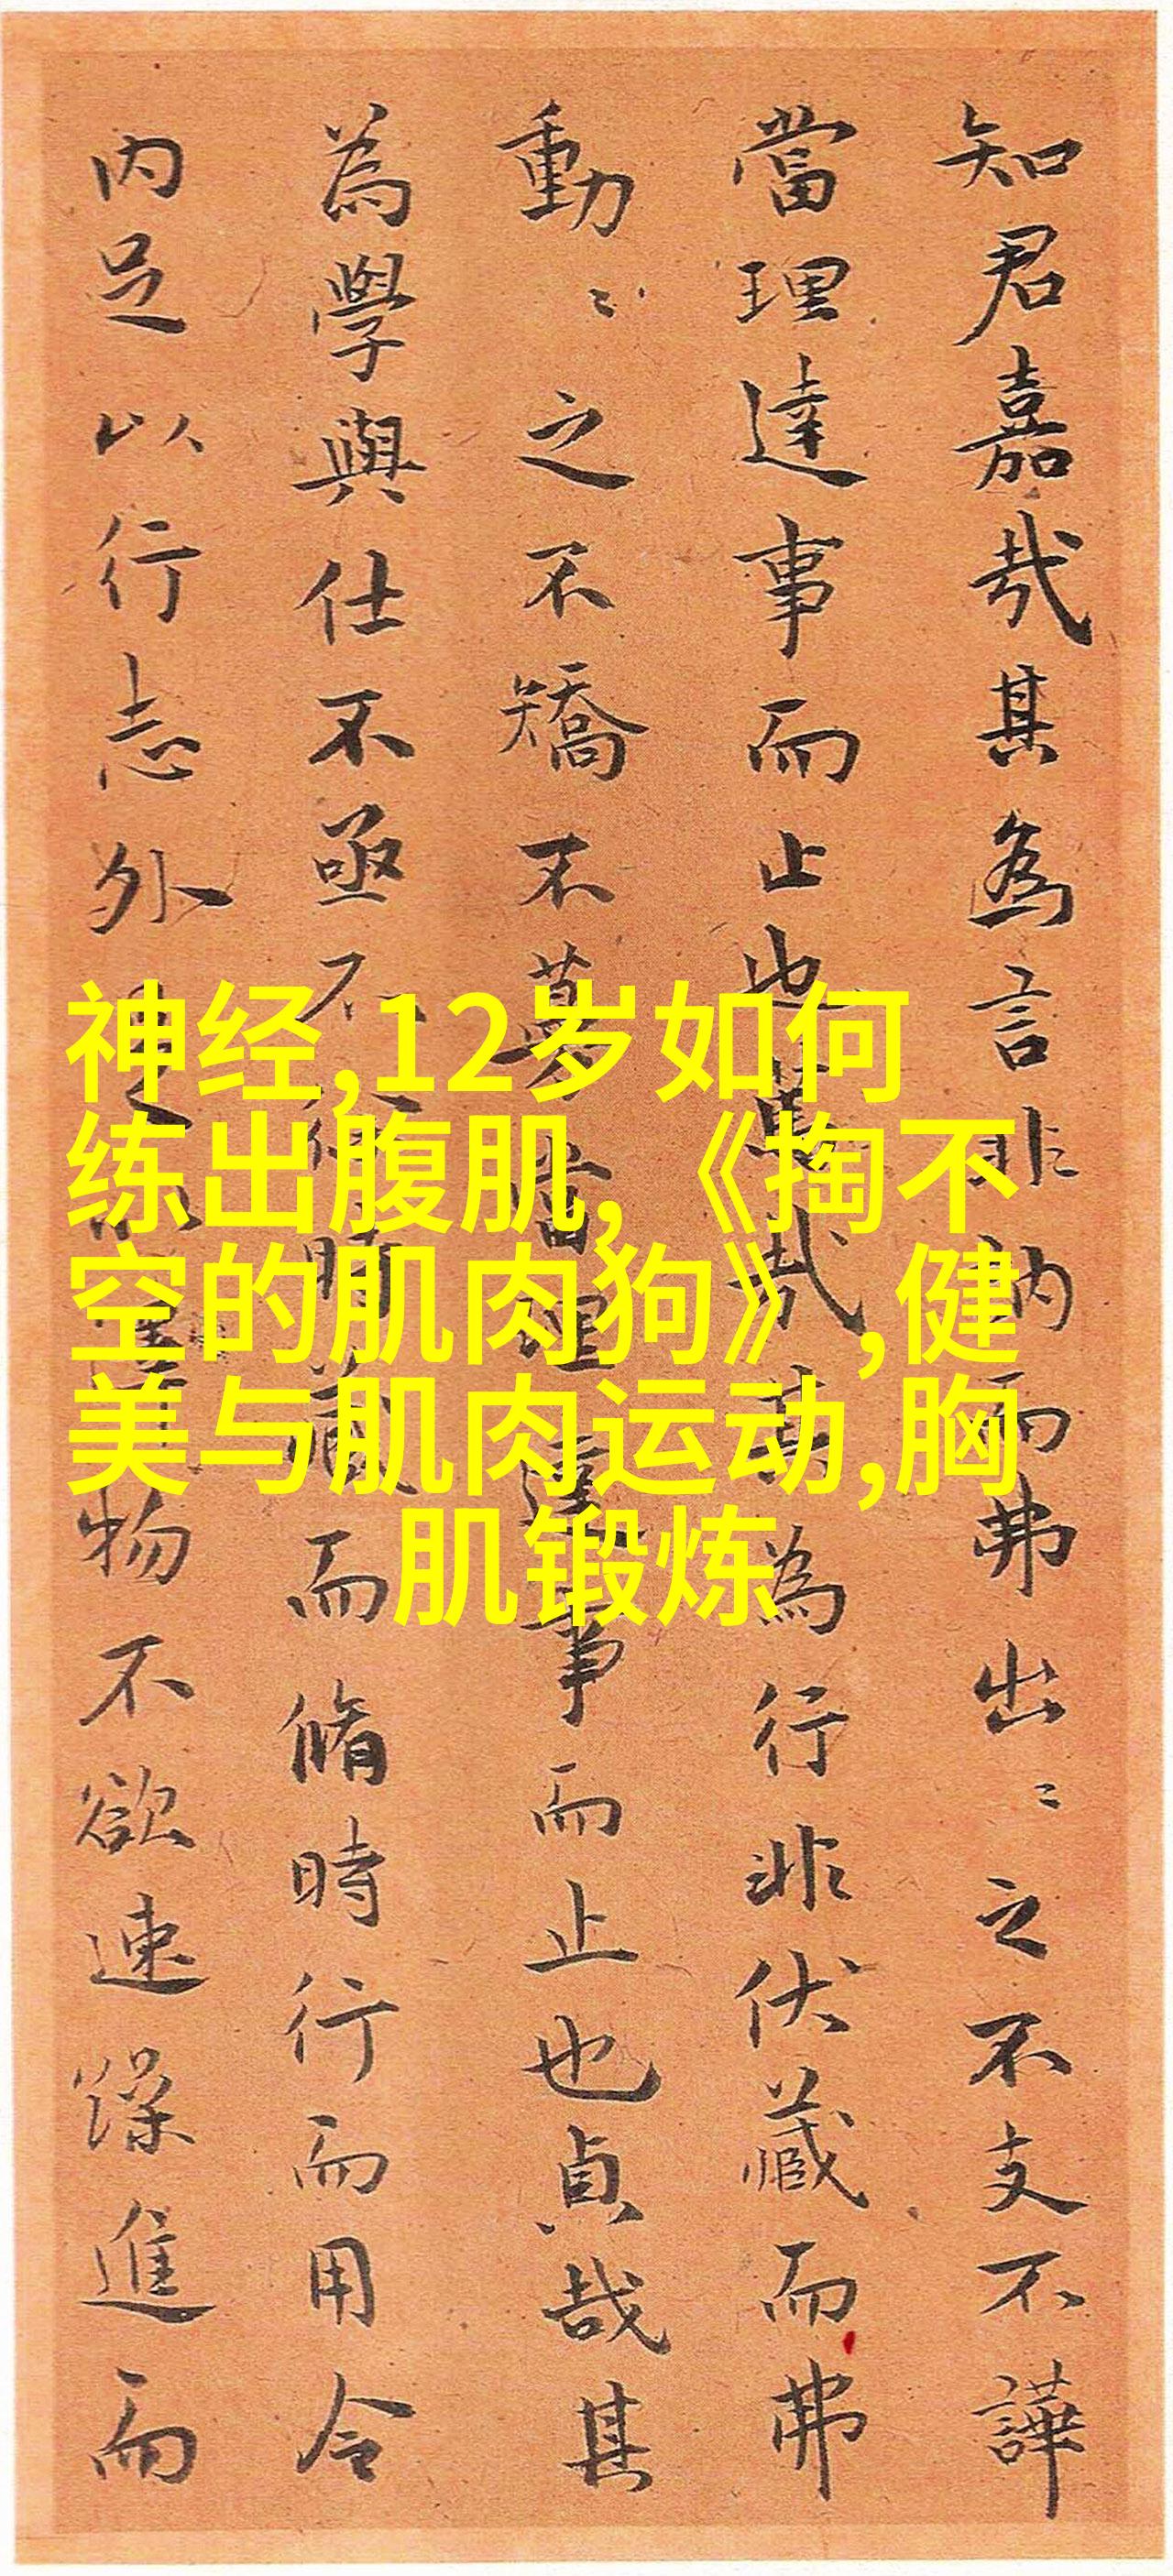 知君嘉哉其為言非訥而弗出〻之不支不譁
當理達事而止也哉其為行非伏藏而弗
動〻之不矯不當理達事而止也貞哉其
為學與仕不亟不時藏而脩時行而用令
内足以行志外足物不欲速躁進而
神经,12岁如何
练出腹肌,《掏不
空的肌肉狗》,健
美与肌肉运动,胸
肌锻炼